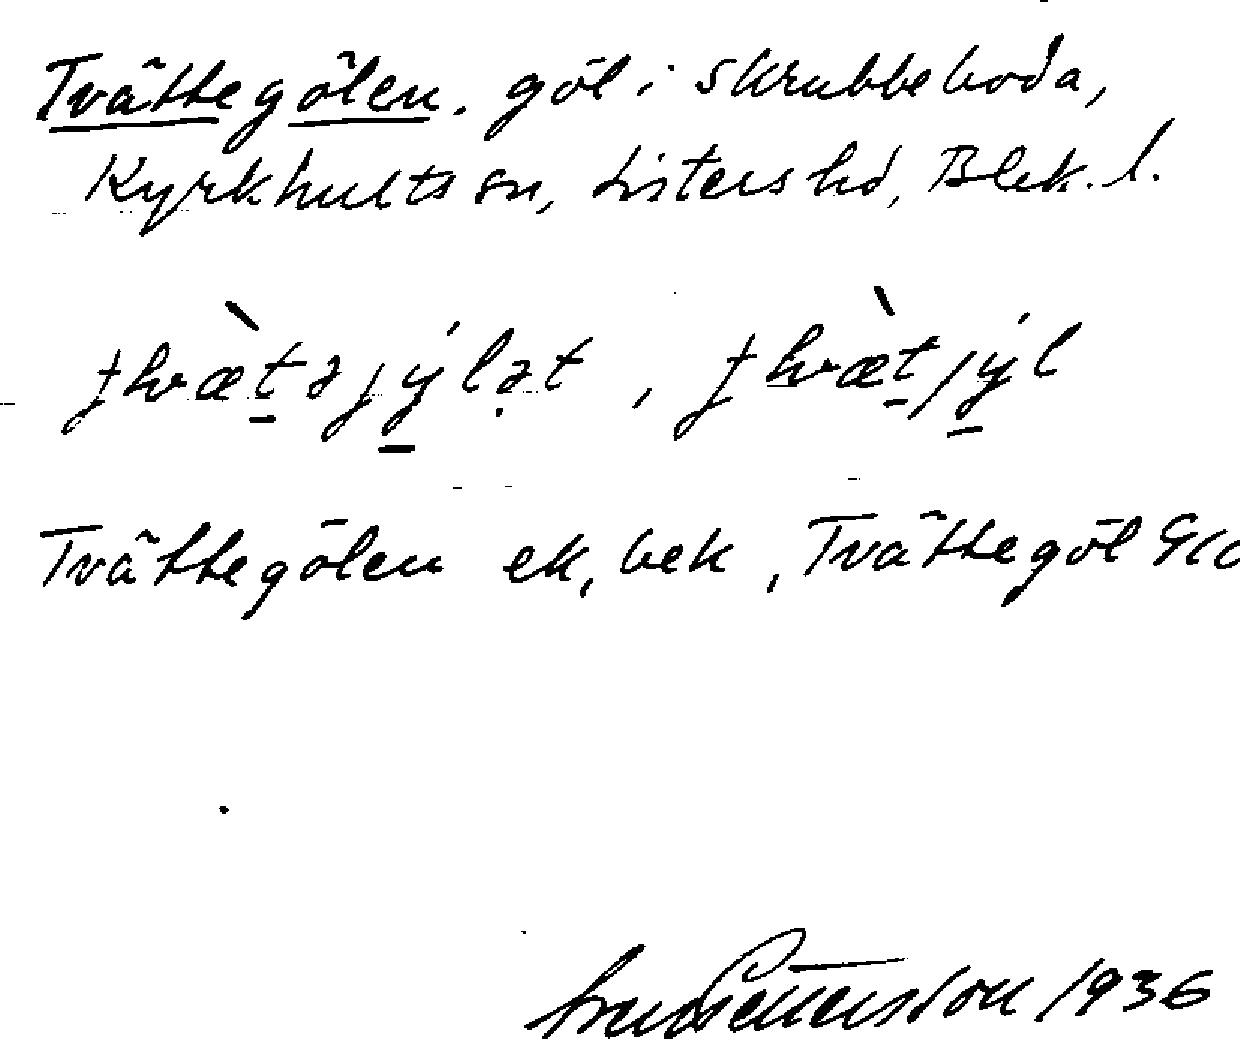 Tvättegölen. göl i Skrubbeboda,
Kyrkhults sn, Listers hd, Blek. l.
ʈhvæ̀təjýlət, ʈhvæ̀tjýl
Tvättegölen ek, bek, Tvättegöl GK
Pettersson 1936